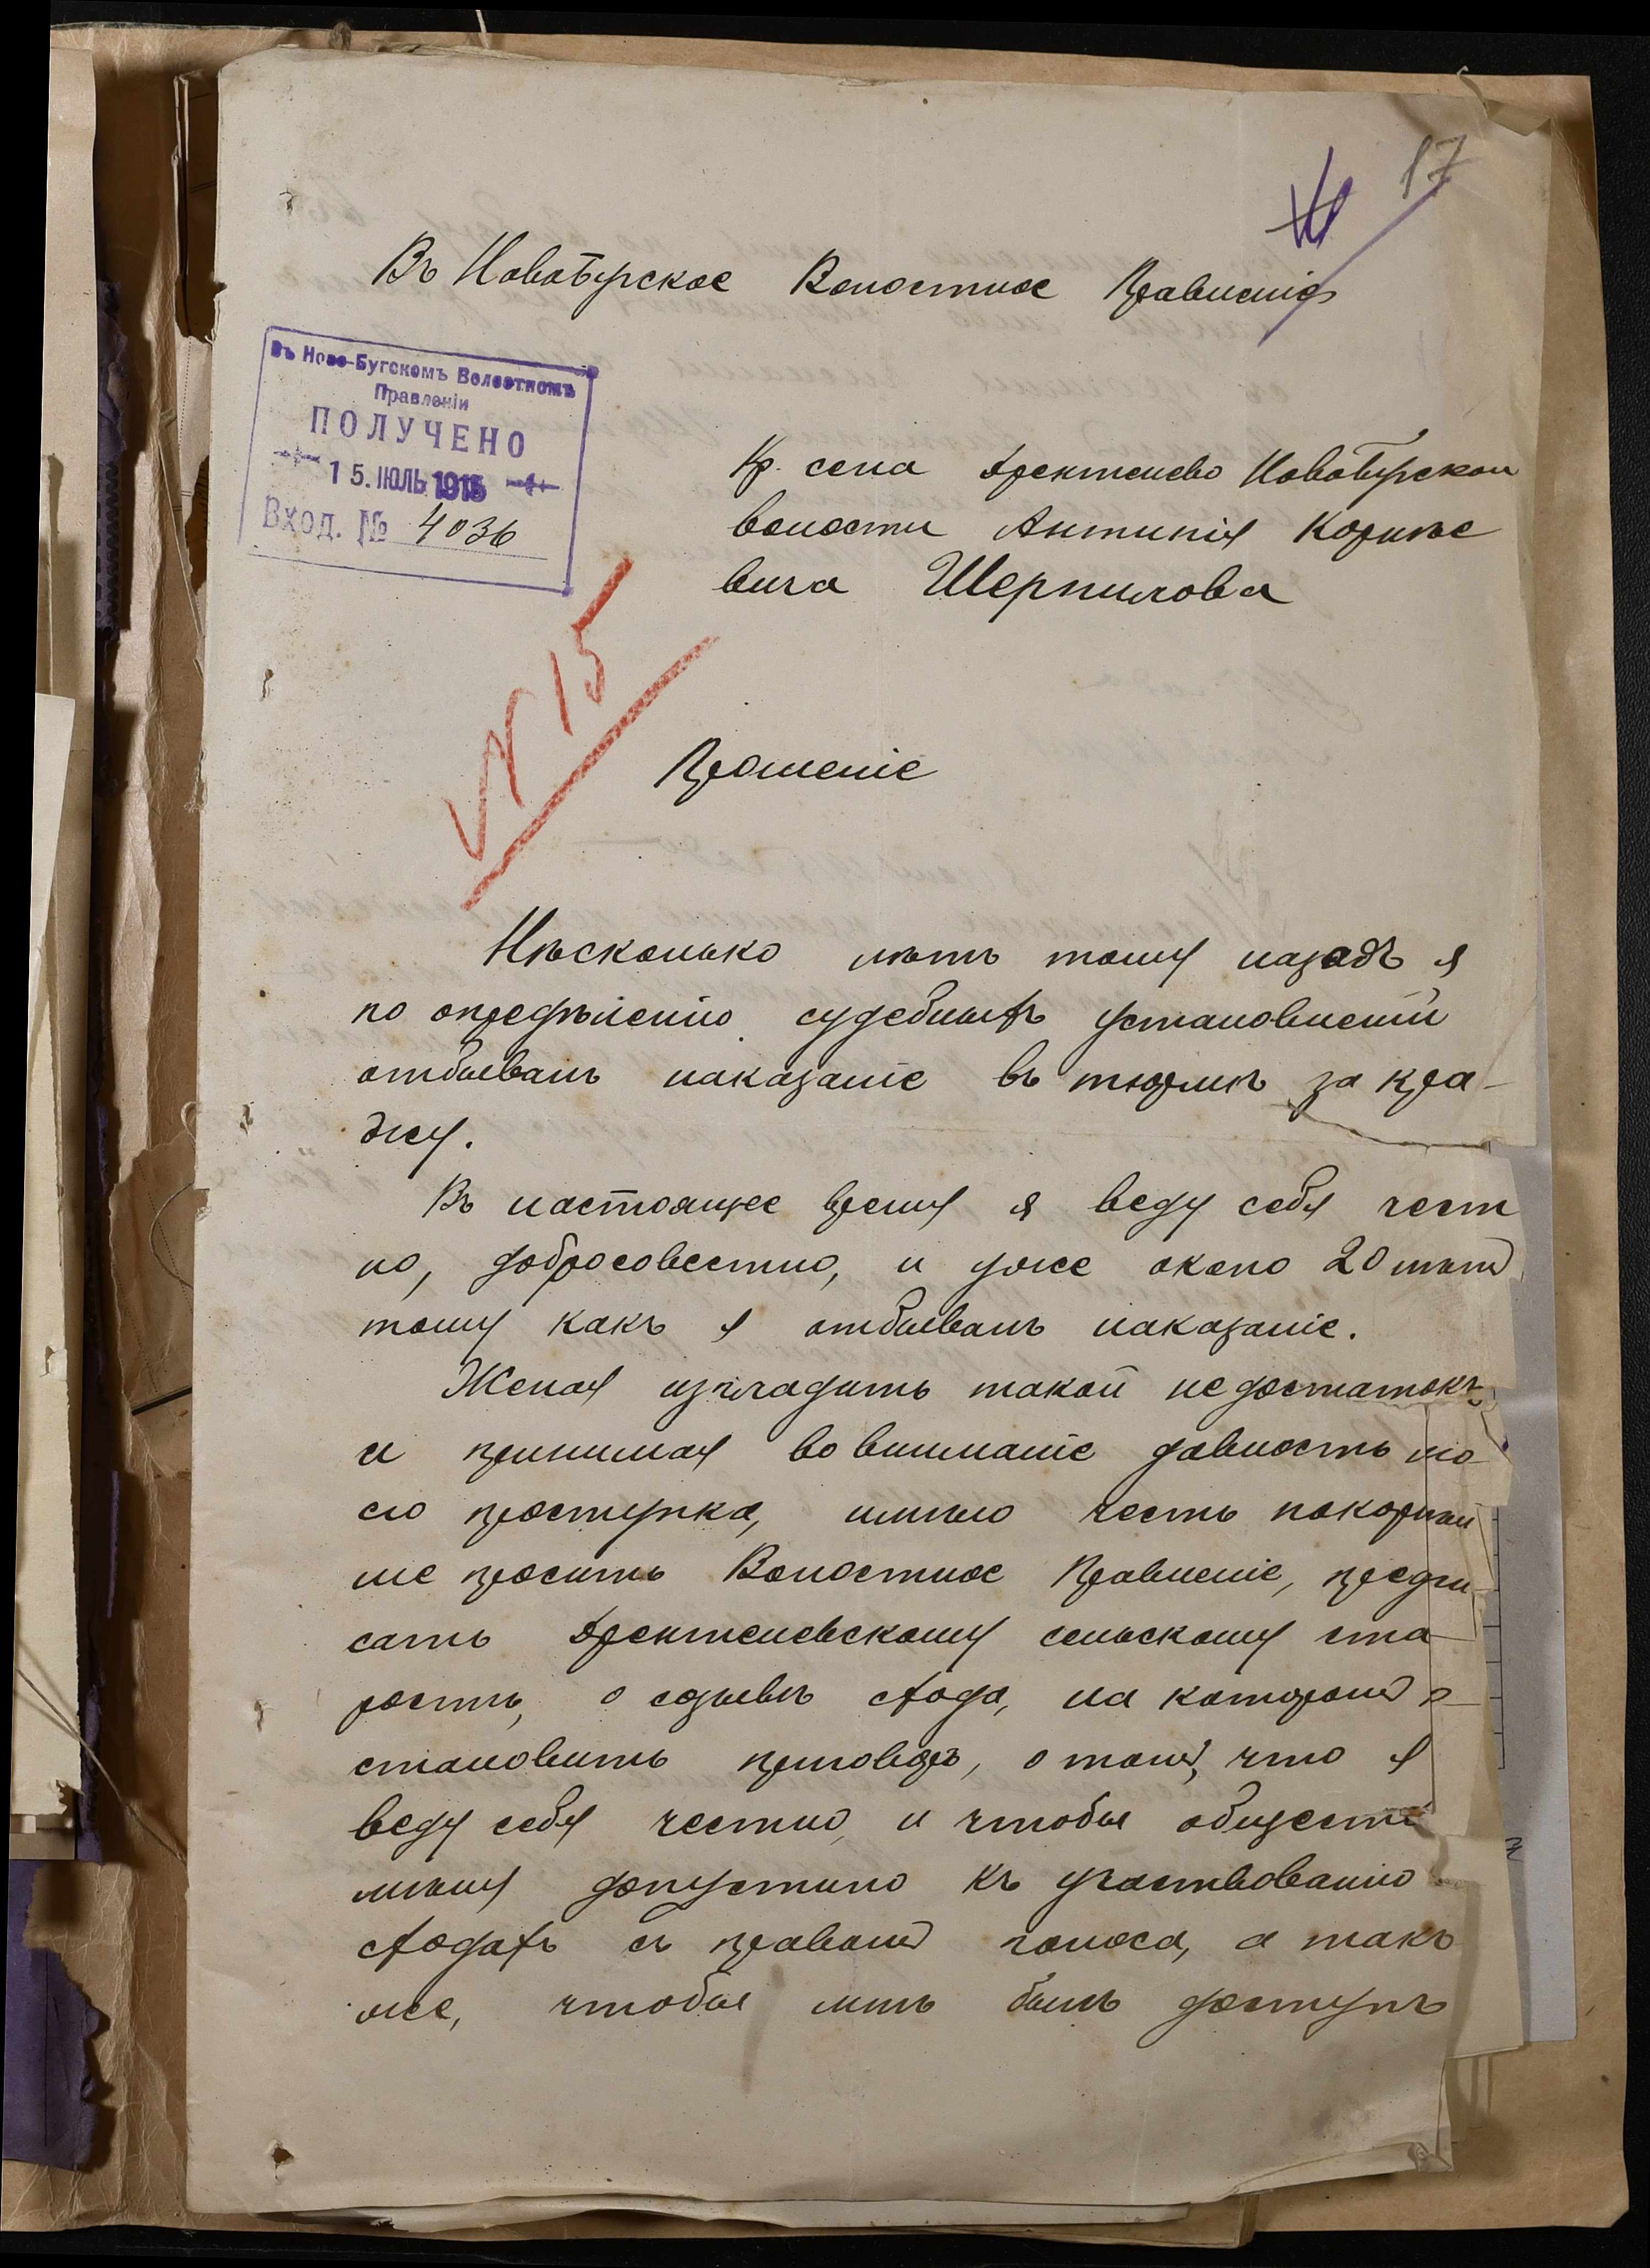 17
Въ Новобугское Волостное Правленіе
Въ Ново-Бугскомъ Волостномъ
Правленіи
ПОЛУЧЕНО
15. ІЮЛЬ 1915
Вход. № 4036
Кр. села Арентелево Новобугской
волости Антипія Корнѣе
вича Шерпилова
№ 15
Прошеніе
Нѣсколько лѣтъ тому назадъ я
по опредѣленію судебныхъ установленій
отбывалъ наказаніе въ тюрьмѣ за кра-
жу.
Въ настоящее время я веду себя чест
но, добросовестно, и уже около 20 лѣтъ
тому какъ я отбывалъ наказаніе.
Желая изгладить такой недостатокъ
и принимая во вниманіе давность мо
его проступка, имѣю честь покорнѣй
ше просить Волостное Правленіе, предпи
сать Арентелевскому сельскому ста
ростѣ, о созывѣ схода, на которомъ по
становить приговоръ, о томъ, что я
веду себя честно, и чтобы общест
допустило къ участвованію
сходахъ съ правомъ голоса, а такъ
же, чтобы мнѣ былъ доступъ